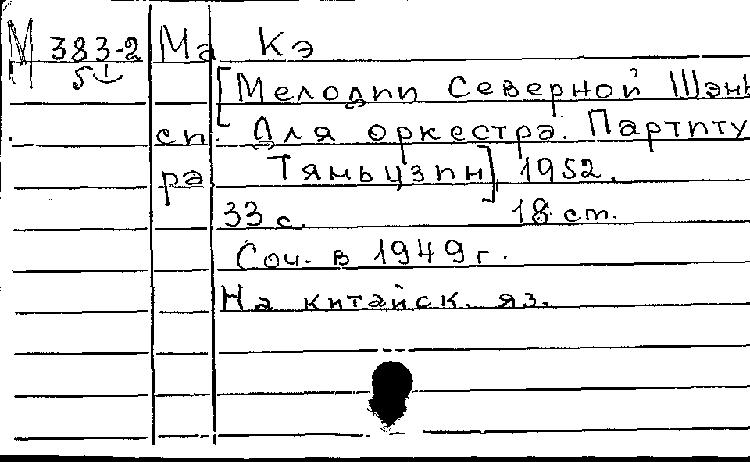 М 383-2 Ма Кэ
5
[Мелодии Северной Шэнь
си. Для оркестра. Партиту
ра Тяньцзин] 1952.
33 с. 18 см.
Соч. в 1949 г.
На китайск. яз.